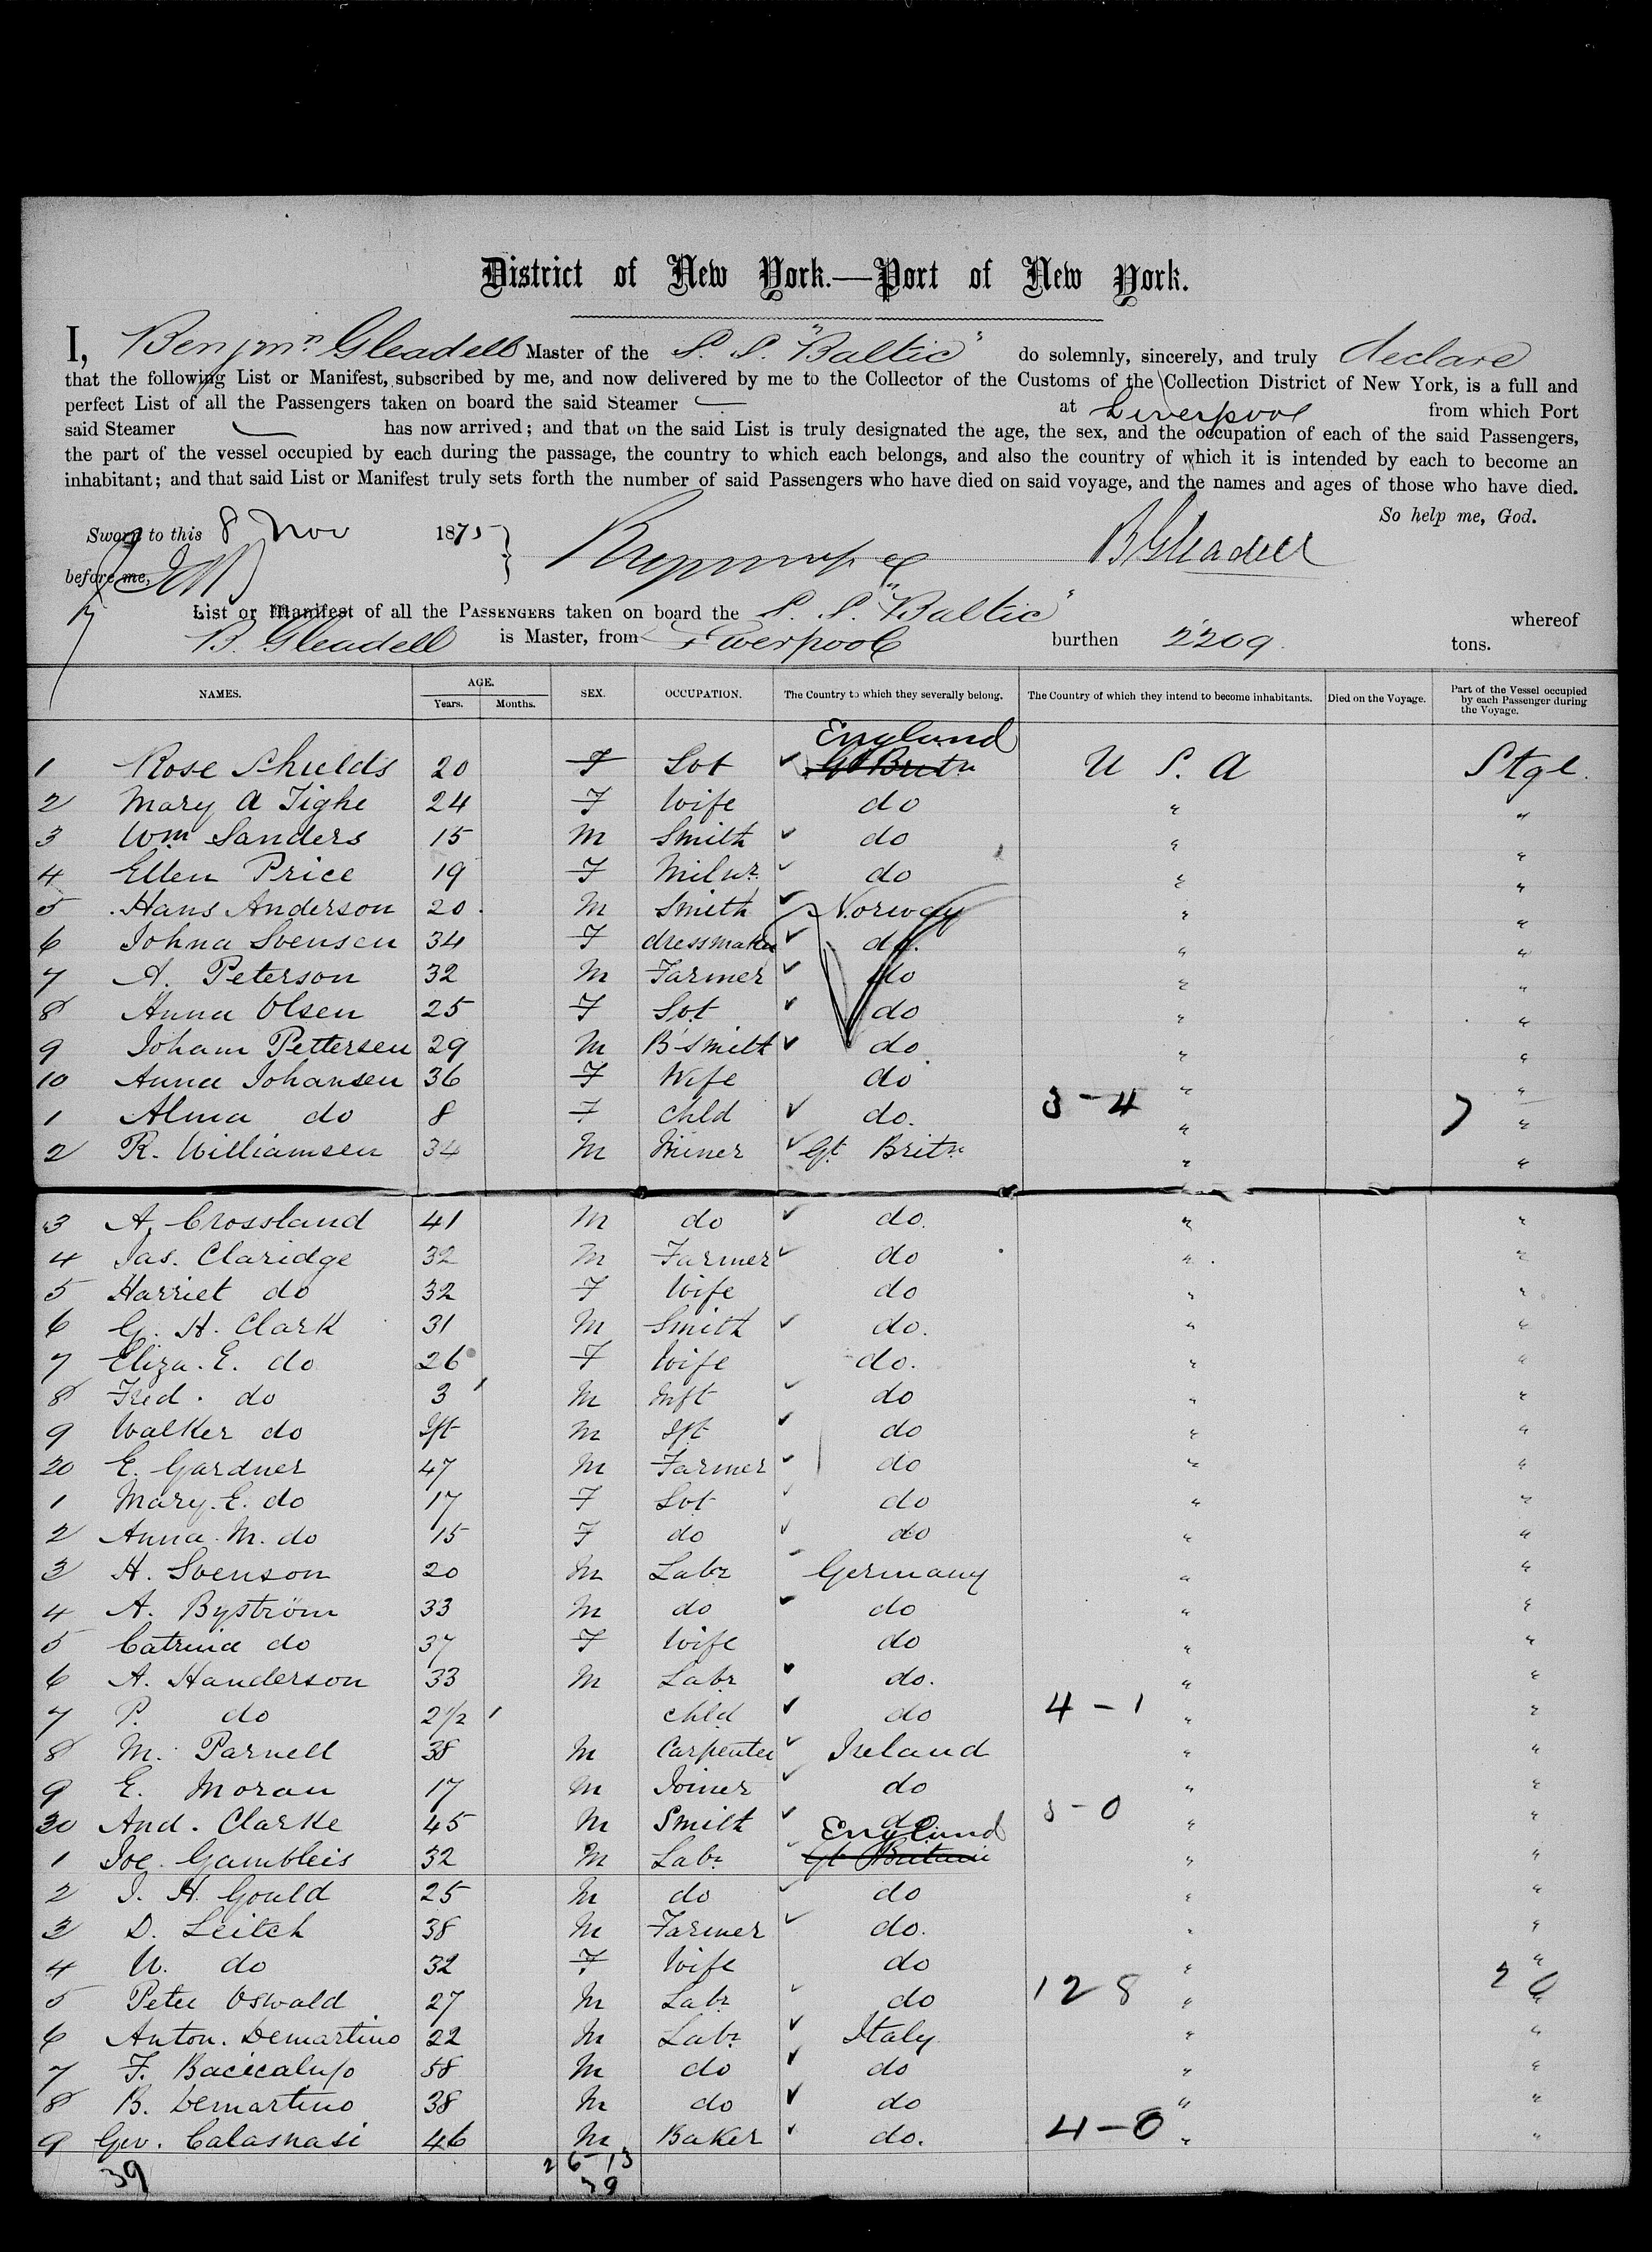 District of New York.—Port of New York.
I, Benjmn Gleadell Master of the S. S. "Baltic" do solemnly, sincerely, and truly declare
that the following List or Manifest, subscribed by me, and now delivered by me to the Collector of the Customs of the Collection District of New York, is a full and
perfect List of all the Passengers taken on board the said Steamer at Liverpool from which Port
said Steamer has now arrived; and that on the said List is truly designated the age, the sex, and the occupation of each of the said Passengers,
the part of the vessel occupied by each during the passage, the country to which each belongs, and also the country of which it is intended by each to become an
inhabitant; and that said List or Manifest truly sets forth the number of said Passengers who have died on said voyage, and the names and ages of those who have died.
So help me, God.
Sworn to this 8 Nov 1875
B Gleadell
before me,
List or Manifest of all the PASSENGERS taken on board the S. S. "Baltic" whereof
B. Gleadell is Master, from Liverpool burthen 2209 tons.
NAMES. AGE. Years. Months. SEX. OCCUPATION. The Country to which they severally belong. The Country of which they intend to become inhabitants. Died on the Voyage. Part of the Vessel occupied by each Passenger during the Voyage.
England
1 Rose Shields 20 F Svt Gt Britn U S. A Stge.
2 Mary A Tighe 24 F Wife do " "
3 Wm Sanders 15 M Smith do " "
4 Ellen Price 19 F Milnr do " "
5 Hans Anderson 20 M Smith Norway " "
6 Johna Svensen 34 F dressmaker do. " "
7 A. Peterson 32 M Farmer do " "
8 Anna Olsen 25 F Svt do " "
9 Joham Pettersen 29 M B-Smith do " "
10 Anna Johansen 36 F Wife do " "
1 Alma do 8 F Chld do. 3-4 " 7 "
2 R. Williamsen 34 M Miner Gt Britn " "
3 A. Crossland 41 M do do. " "
4 Jas. Claridge 32 M Farmer do " "
5 Harriet do 32 F Wife do " "
6 G. H. Clark 31 M Smith do. " "
7 Eliza. E. do 26 F Wife do. " "
8 Fred. do 3 M Inft do " "
9 Walker do Ift M Ift do " "
20 E. Gardner 47 M Farmer do " "
1 Mary. E. do 17 F Svt do " "
2 Anna M. do 15 F do do " "
3 H. Svenson 20 M Labr Germany " "
4 A. Byström 33 M do do " "
5 Catrina do 37 F Wife do " "
6 A. Handerson 33 M Labr do. " "
7 P. do 2 1/2 Chld do 4-1 " "
8 M. Parnell 38 M Carpenter Ireland " "
9 E. Moran 17 M Joiner do " "
30 And. Clarke 45 M Smith do 3-0 " "
England
1 Joe Gambleis 32 M Labr Gt Britain " "
2 J. H. Gould 25 M do do " "
3 D. Leitch 38 M Farmer do. " "
4 U. do 32 F Wife do " "
5 Peter Oswald 27 M Labr do 128 " 20 "
6 Anton. Demartino 22 M Labr Italy " "
7 F. Bacicalupo 58 M do do " "
8 B. Demartino 38 M do do " "
9 Gev. Calasnasi 46 M Baker do. 4-0 " "
39 26-13
39